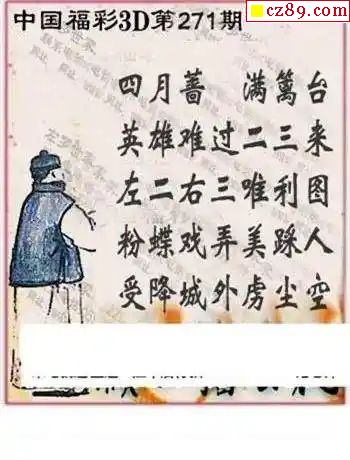 cz89.com
中国福彩3D第271期
四月蔷 满篱台
英雄难过二三来
左二右三唯利图
粉蝶戏弄美踩人
受降城外虏尘空